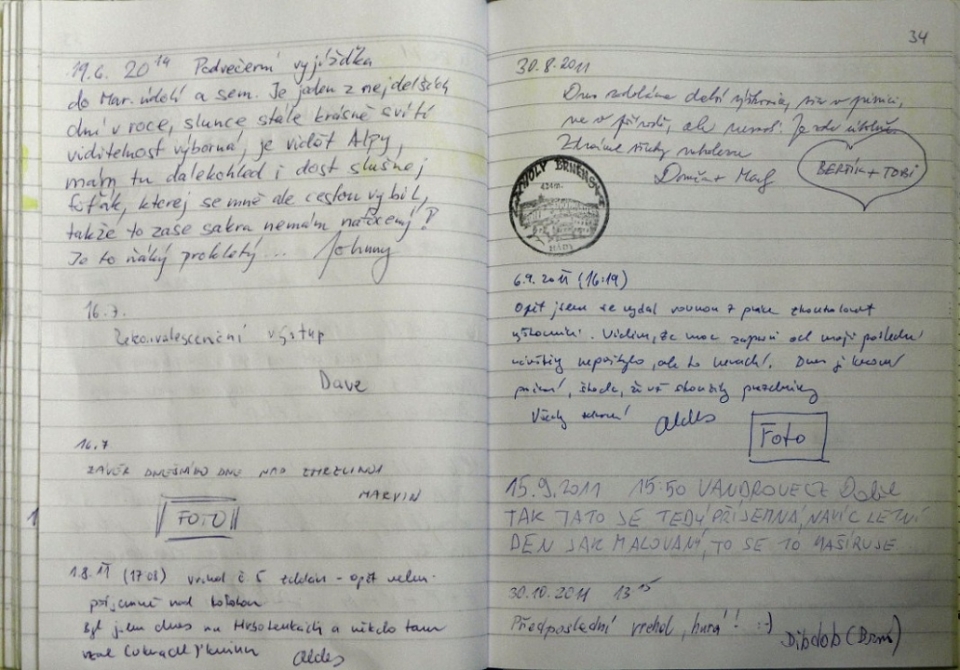 19.6. 20¹⁴ Podvečerní vyjížďka
do Mar. údolí a sem. Je jeden z nejdelších
dní v roce, slunce stále krásně svítí
viditelnost výborná, je vidět Alpy,
mám tu dalekohled i dost slušnej
foťák, kterej se mně ale cestou vybil,
takže to zase sakra nemám natočený!
Je to ňáký prokletý... Johnny
16.7.
Rekonvalescenční výstup
Dave
16.7
ZÁVĚR DNEŠNÍHO DNE NAD ZMRZLINOU
MARVIN
FOTO
1.8. 11 (17:08) vrchol č. 5 zdolán - opět velmi
příjemně nad
Byl jsem dnes na a někdo tam
vzal (ukradl) knihu
aldes
34
30.8.2011
Dnes
ne v přírodě, ale nevadí. Je zde
Zdravíme všechny
BERTÍK + TOBI
HOLY BRNĚNSK
6.9. 2011 (16:19)
Opět jsem se vydal rovnou z práce zkontrolovat
vrcholovnici. Vidím, že moc zápisů od mojí poslední
návštěvy nepřibylo, ale to nevadí. Dnes je krásné
počasí, škoda, že už skončily prázdniny
Všechny zdraví aldes
Foto
15.9.2011 15:50 VANDROVEC Z
TAK TATO JE TEDY PŘÍJEMNÁ, NAVÍC LETNÍ
DEN JAK MALOVANÝ, TO SE TO MAŠÍRUJE
30.10.2011 13¹⁵
Předposlední vrchol, hurá!! :-)
Dibdob (Brno)